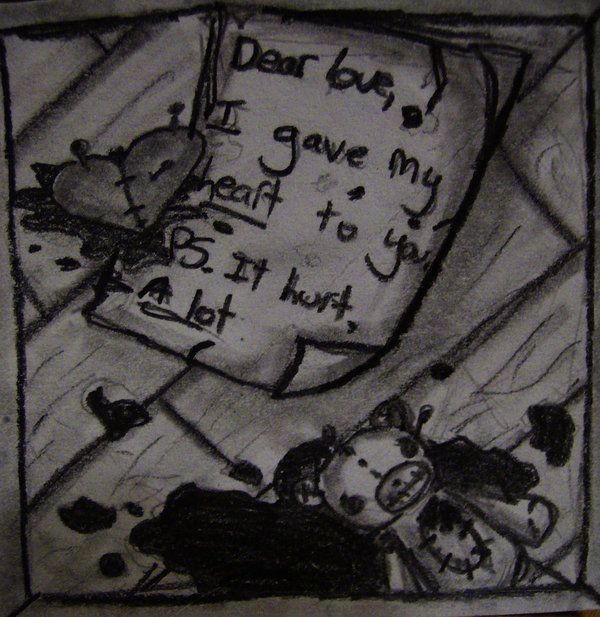 Dear love,
I gave my
heart to you.
PS. It hurt,
A lot